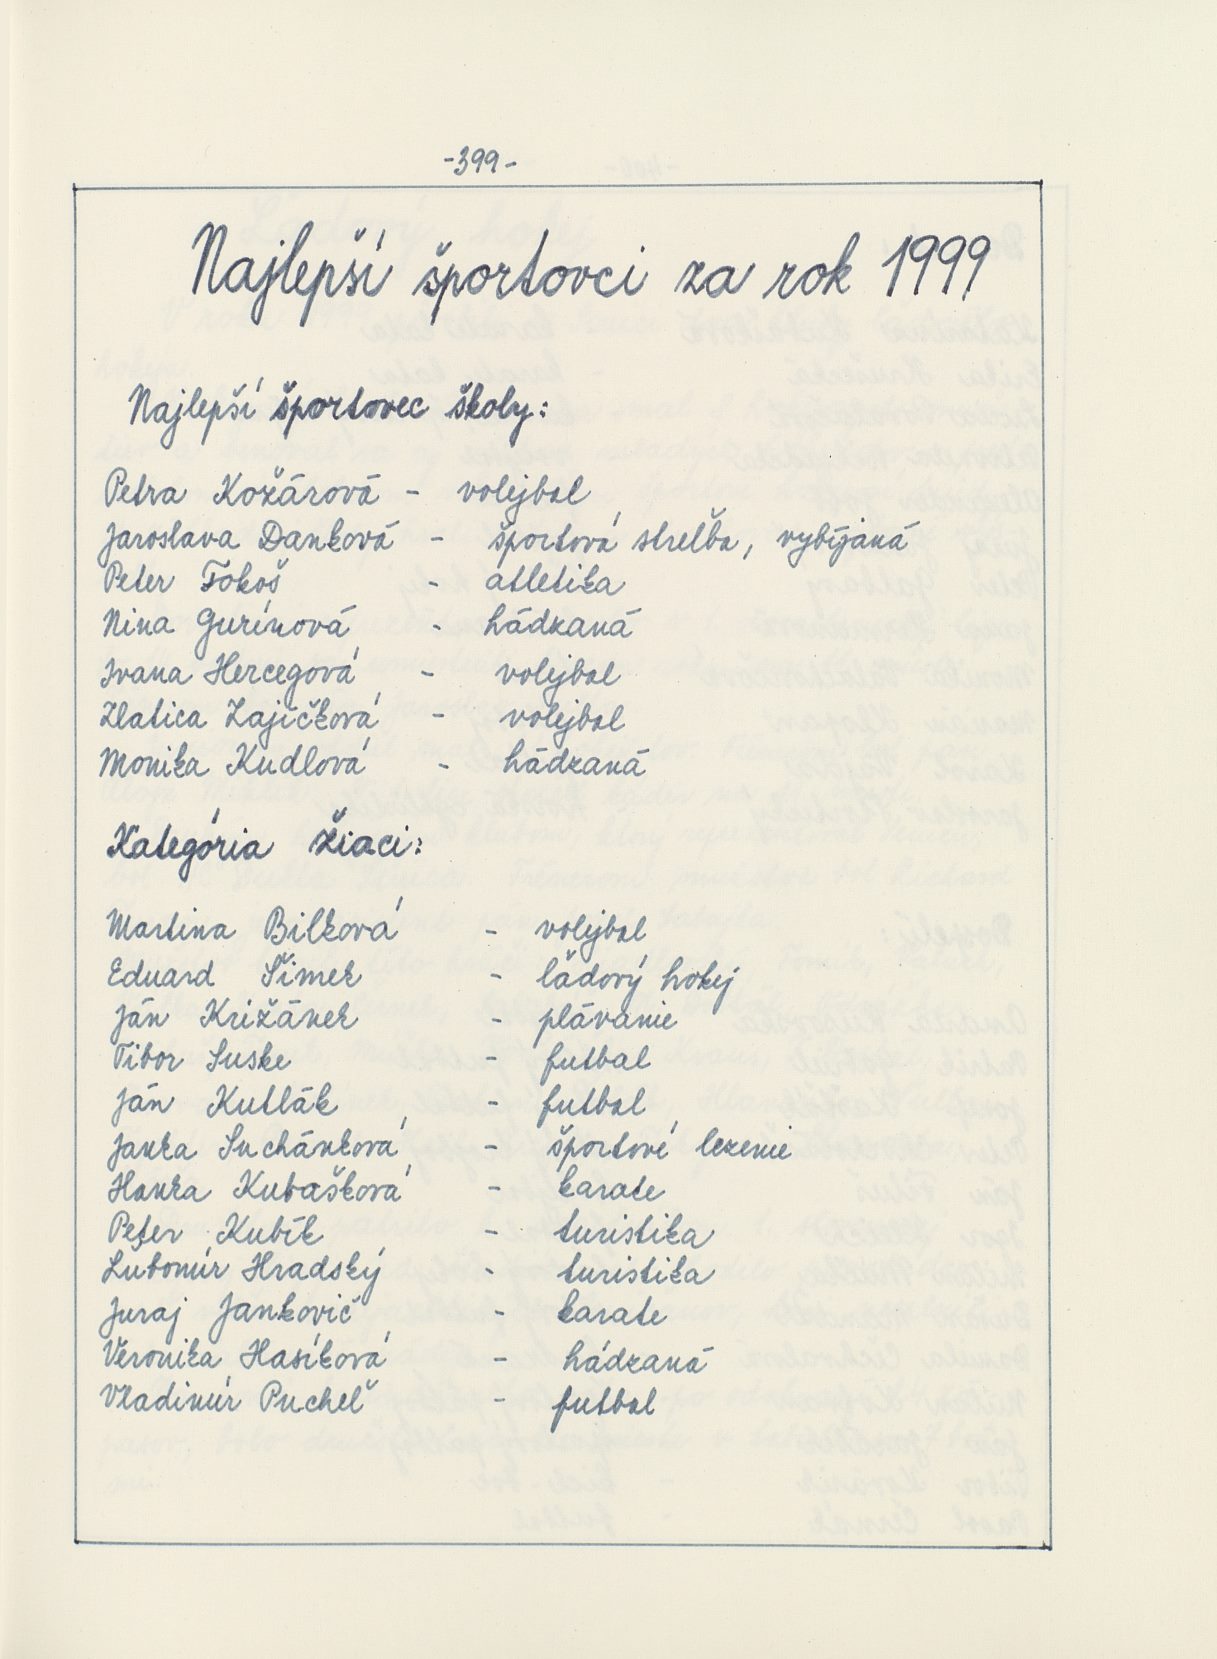 -399-
Najlepší športovci za rok 1999
Najlepší športovec školy:
Petra Kožárová - volejbal
Jaroslava Danková - športová streľba, vybíjaná
Peter Tokoš - atletika
Nina Gurínová - hádzaná
Ivana Hercegová - volejbal
Zlatica Zajíčková - volejbal
Monika Kudlová - hádzaná
Kategória žiaci:
Martina Bílková - volejbal
Eduard Šimek - ľadový hokej
Ján Križánek - plávanie
Tibor Suske - futbal
Ján Kutlák - futbal
Janka Suchánková - športové lezenie
Hanka Kubašková - karate
Peter Kubík - turistika
Ľubomír Hradský - turistika
Juraj Jankovič - karate
Veronika Hasíková - hádzaná
Vladimír Puchel - futbal